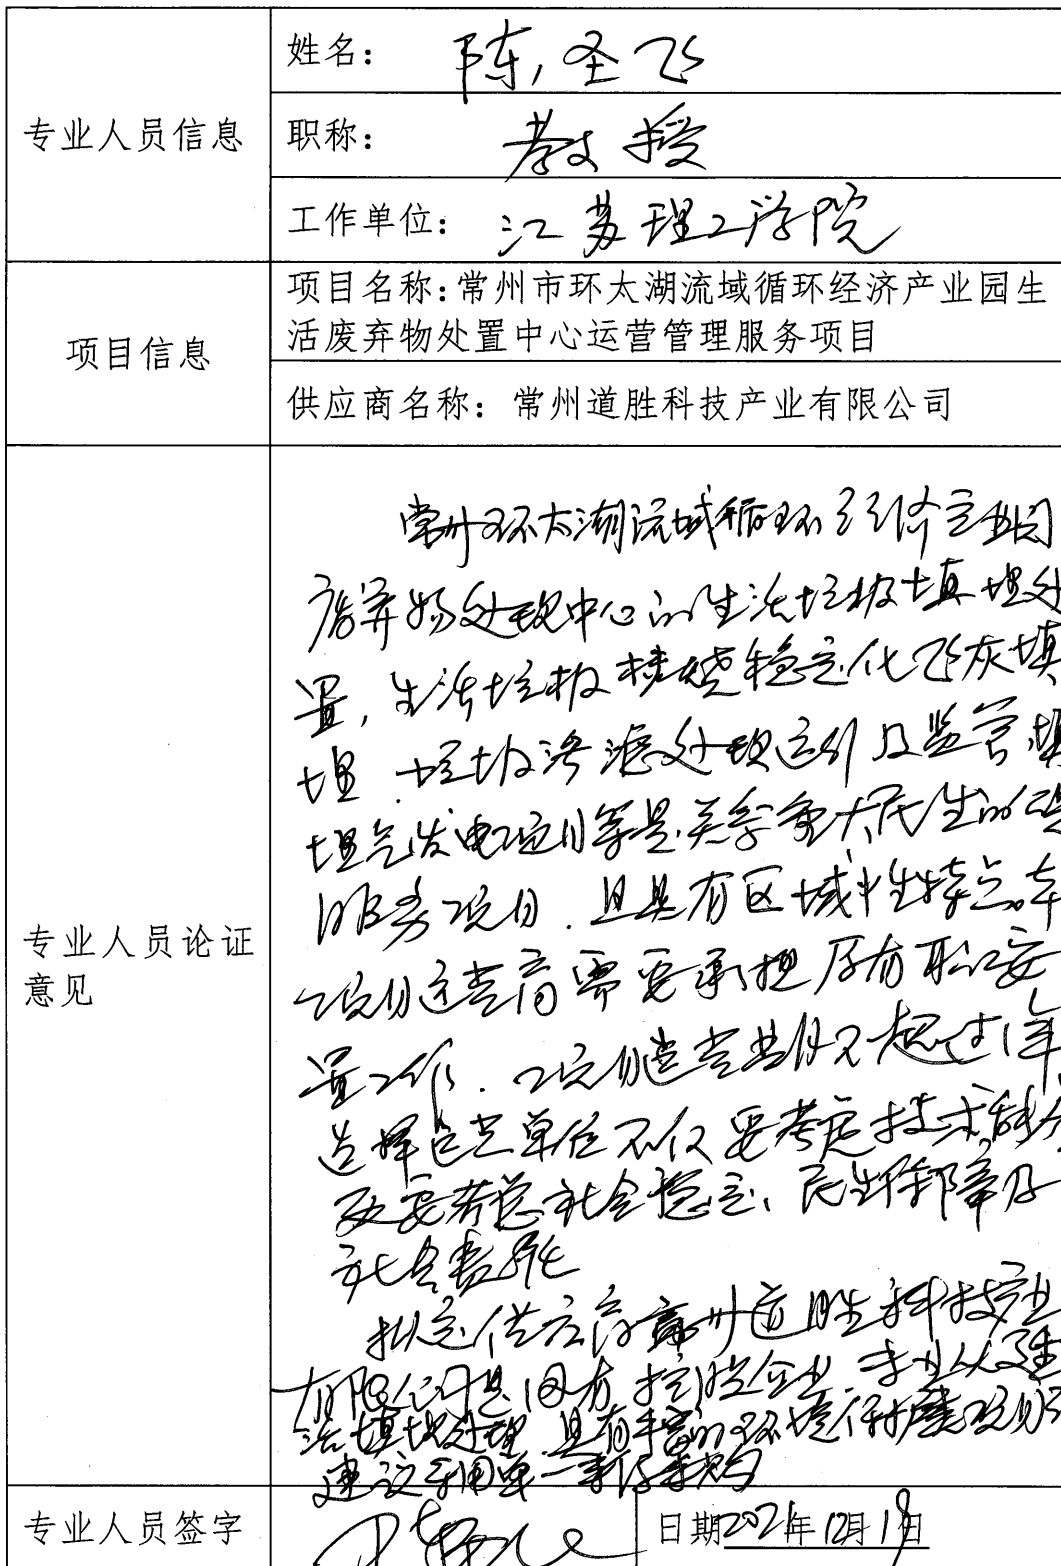 专业人员信息
姓名： 陈圣飞
职称： 教授
工作单位： 江苏理工学院
项目信息
项目名称：常州市环太湖流域循环经济产业园生
活废弃物处置中心运营管理服务项目
供应商名称：常州道胜科技产业有限公司
专业人员论证
意见
常州环太湖流域循环经济产业园
废弃物处理中心的生活垃圾填埋处
置，生活垃圾焚烧稳定化飞灰填
埋、垃圾渗滤处理运行及监管、填
埋气发电项目等是关系重大民生的
服务项目，且具有区域性特点。本
项目运营商需要承担原有职工安
置工作，项目运营期仅不超过1年，
选择运营单位不仅要考虑技术
更要考虑社会稳定、民生保障及
社会责任
拟定供应商常州道胜科技产业
有限公司是国有控股企业，专业从事生
活填埋处理，具有丰富的环境保护
建议采用单一来源采购
专业人员签字
日期2021年12月19日